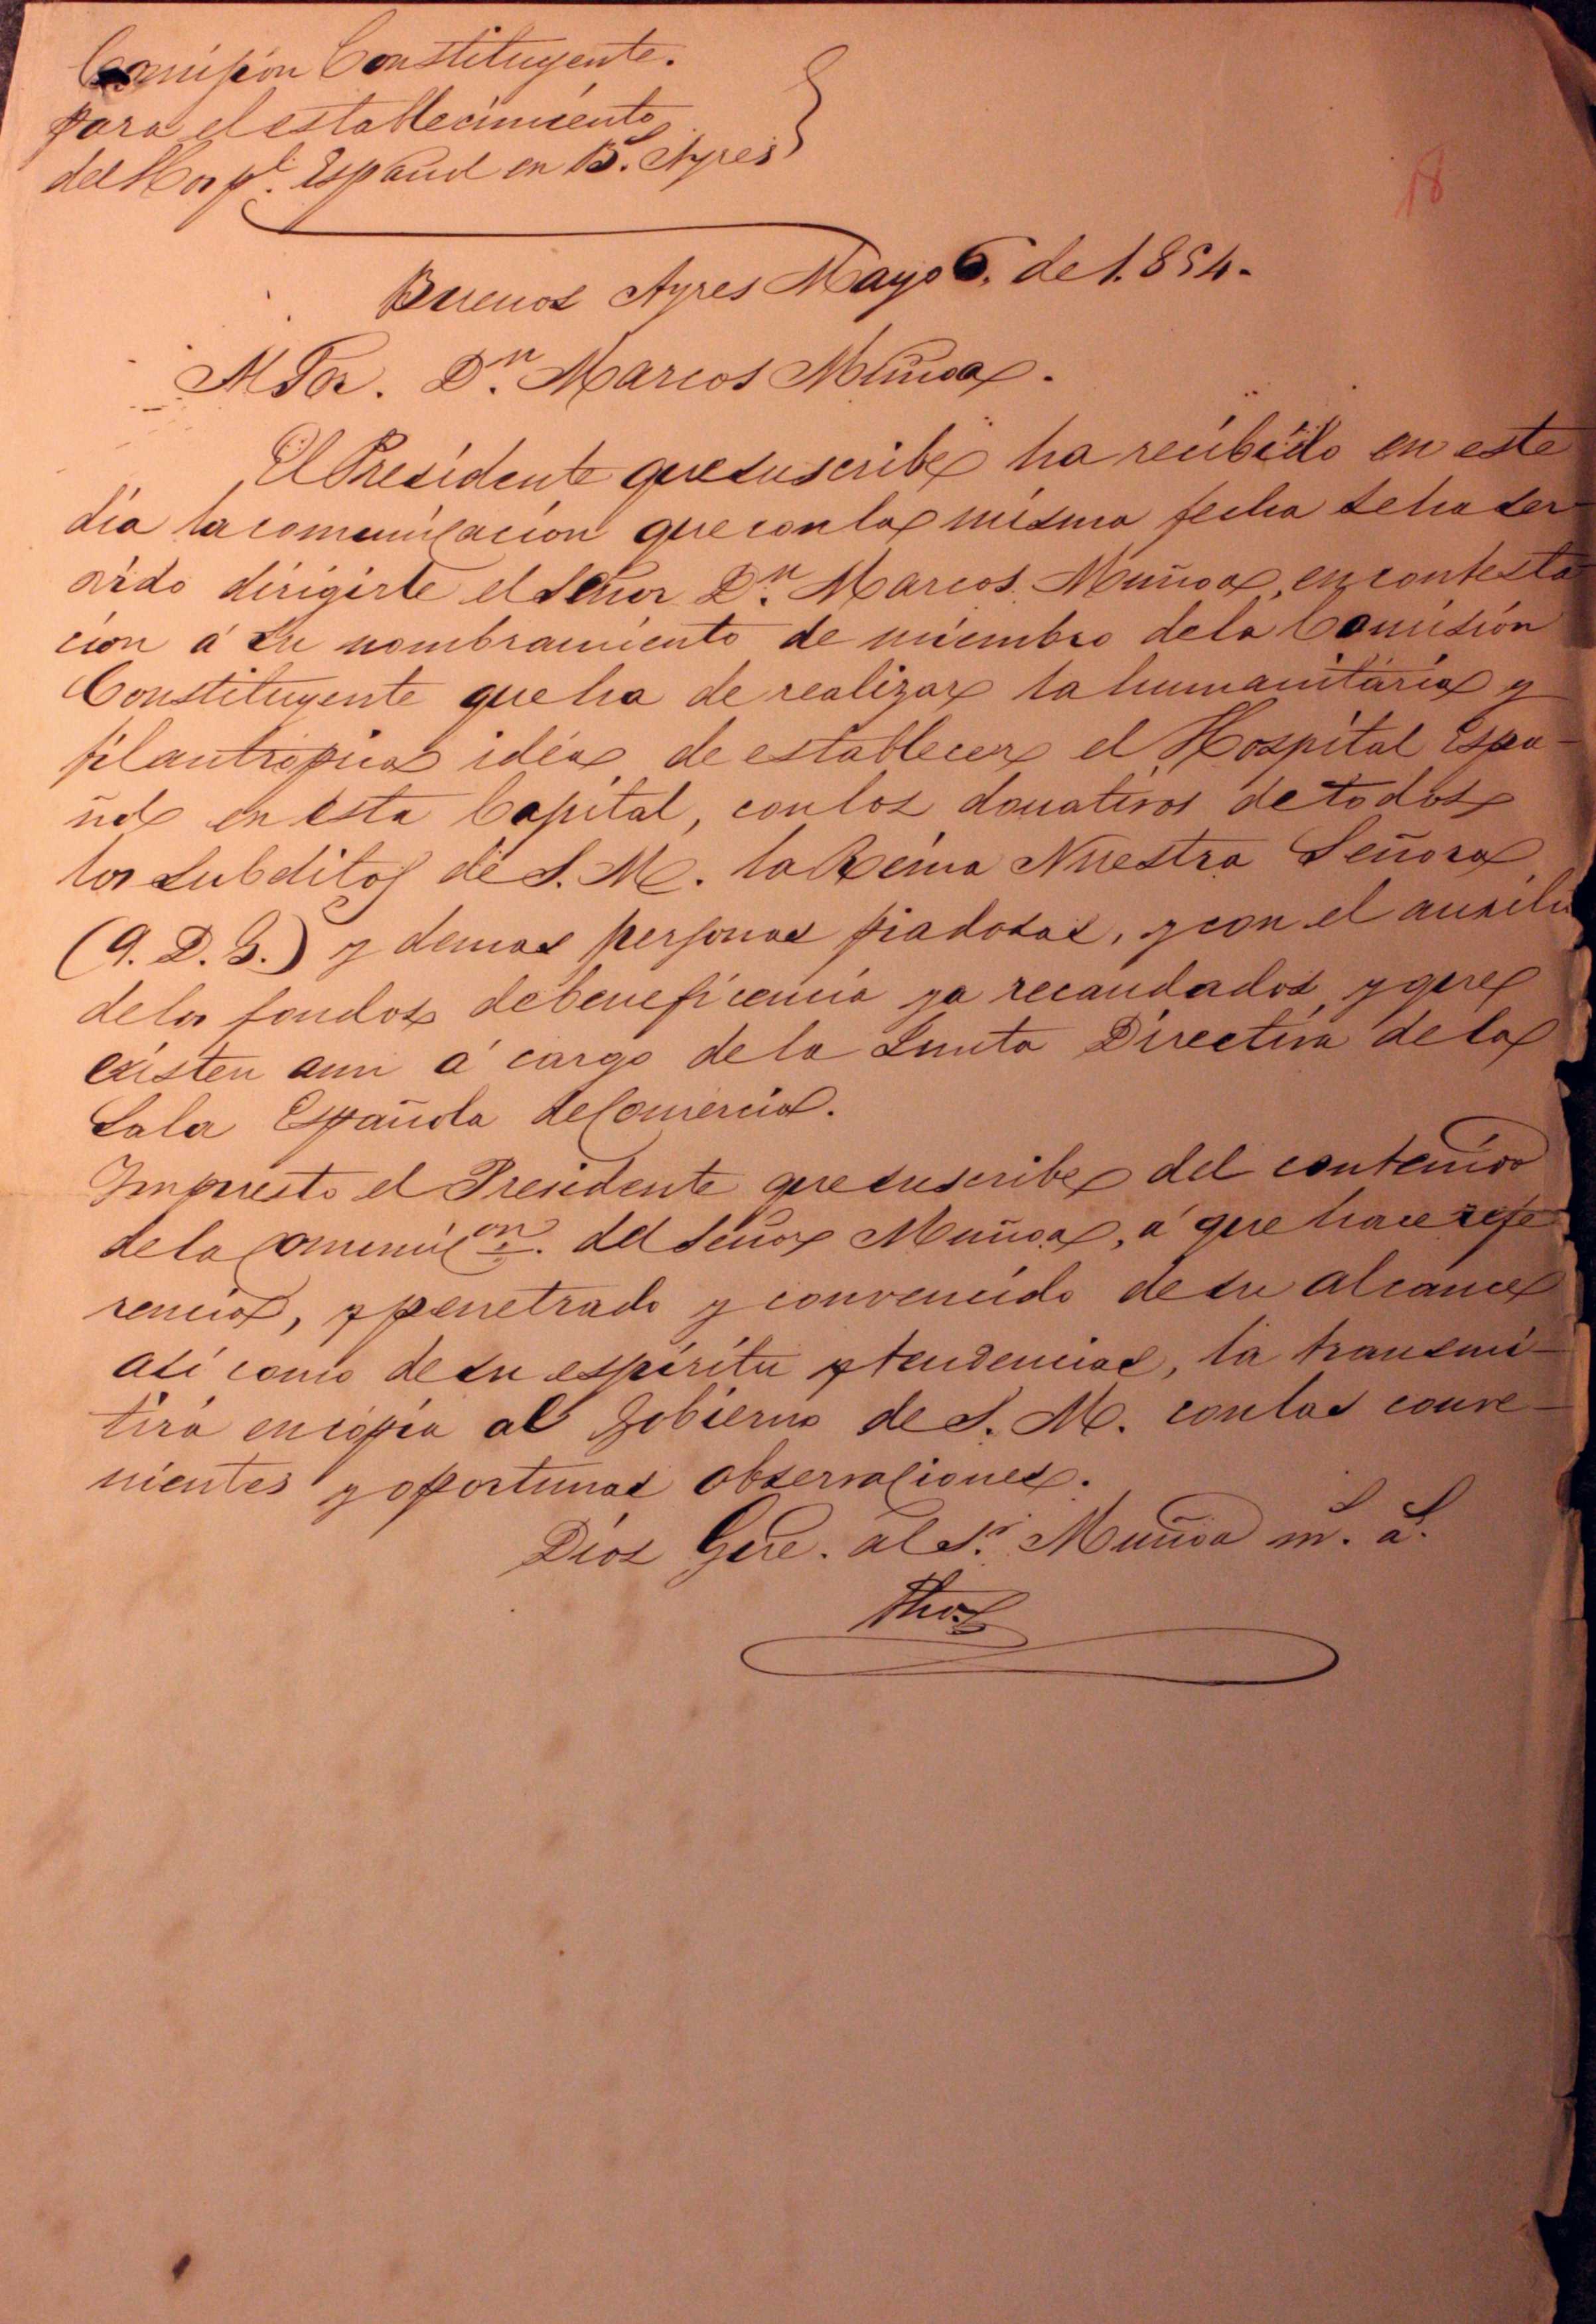 Comision Constituyente.
para el establecimiento
del Hospl. Español en Bs. Ayres
18
Buenos Ayres Mayo 6. de 1.854.
Al Sor. Dn. Marcos Muñoa.
El Presidente que suscribe ha recibido en este
dia la comunicacion que con la misma fecha se ha ser-
vido dirigirle el Señor Dn. Marcos Muñoa, en contesta-
cion á su nombramiento de miembro de la Comisión
Constituyente que ha de realizar la humanitaria y
filantropica idéa de establecer el Hospital Espa-
ñol en esta Capital, con los donativos de todos
los subditos de S. M. la Reina Nuestra Señora
(q. D. G.) y demas personas piadosas, y con el auxilio
de los fondos de beneficencia ya recaudados, y que
existen aun á cargo de la Junta Directiva de la
Sala Española de Comercio.
Impuesto el Presidente que suscribe del contenido
de la Comunicon. del Señor Muñoa, á que hace refe
rencia, y penetrado y convencido de su alcance
asi como de su espíritu y tendencias, la transmi-
tirá en cópia al Gobierno de S. M. con las conve-
nientes y oportunas observaciones.
Dios Gue. al Sr. Muñoa ms. as.